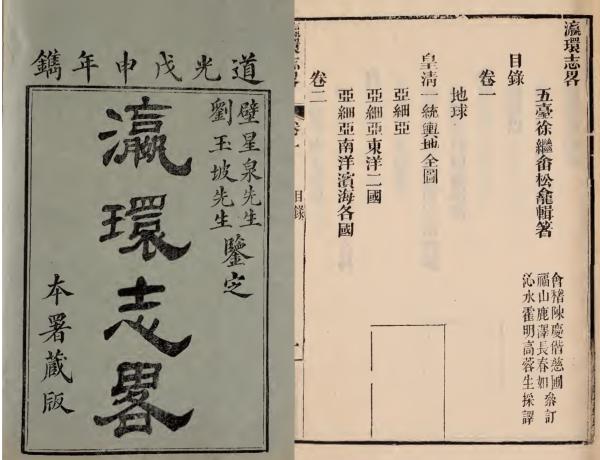 道光戊申年鐫
壁星泉先生
劉玉坡先生
鑒定
瀛環志畧
本署藏版
瀛環志畧
目錄
五臺徐繼畬松龕輯著
會稽陳慶偕慈圃
福山鹿澤長春如
參訂
沁水霍明高蓉生採譯
卷一
地球
皇清一統輿地全圖
亞細亞
亞細亞東洋二國
亞細亞南洋濱海各國
卷二
目錄